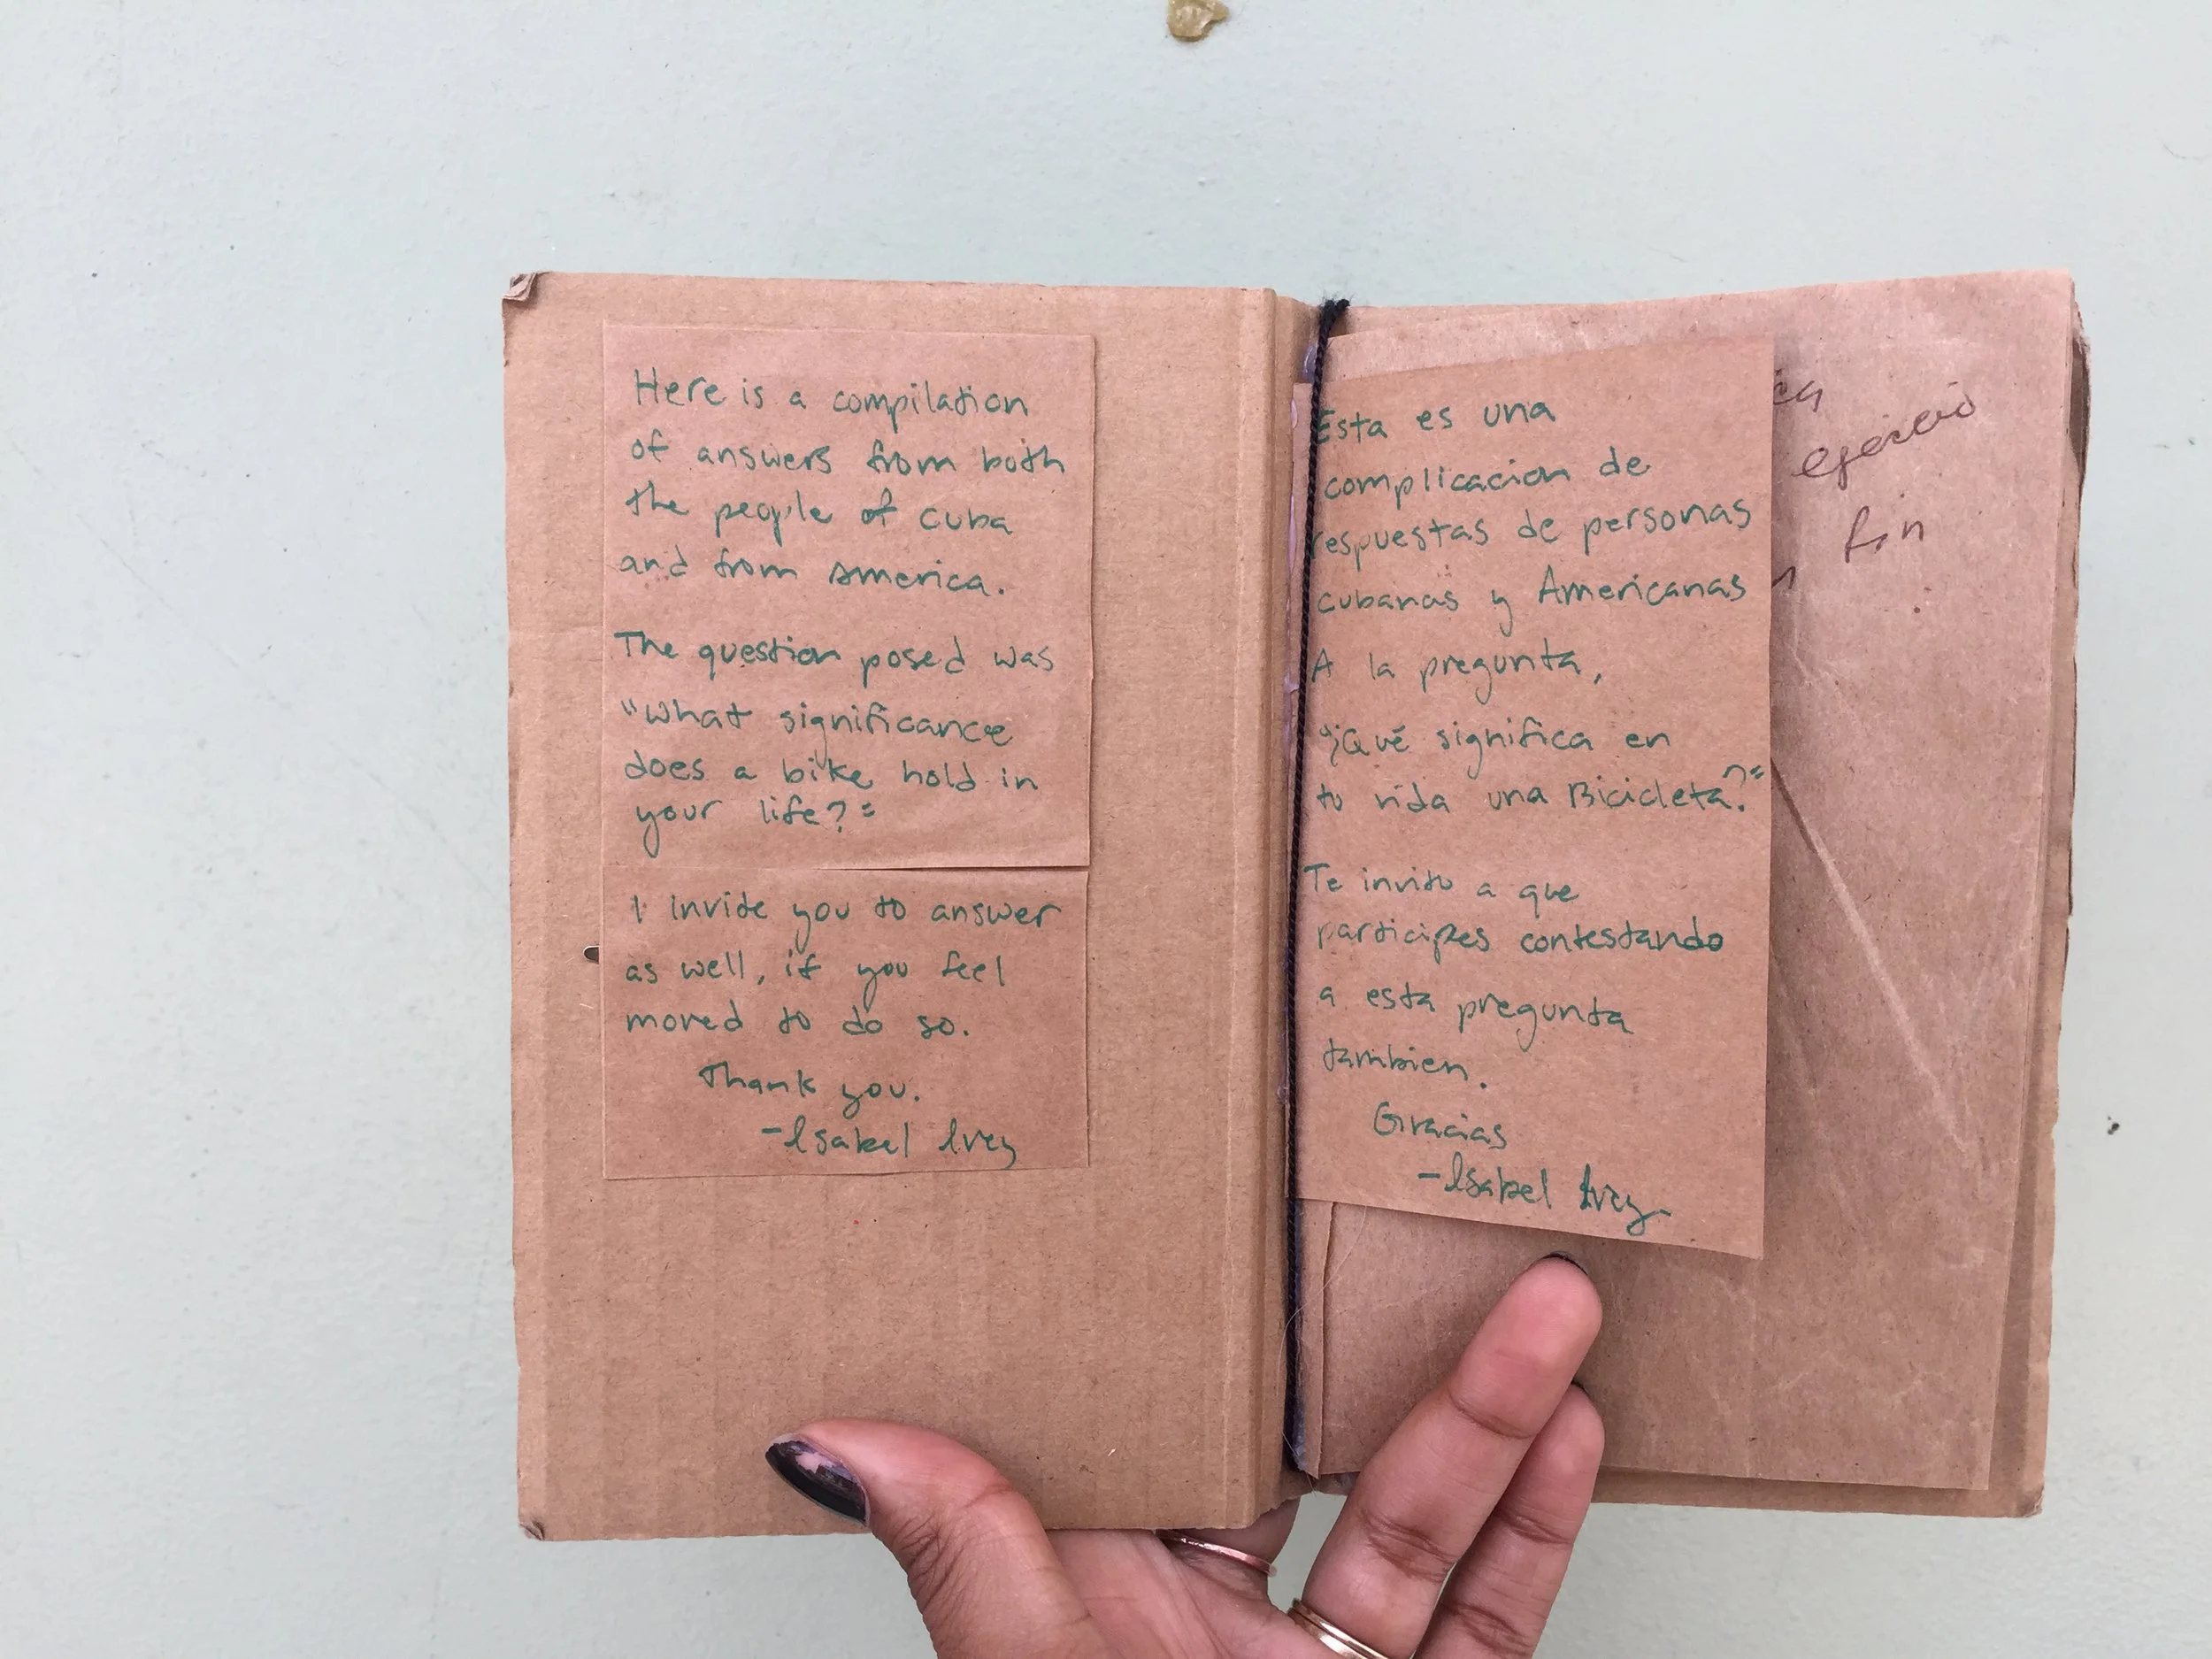 Here is a compilation
of answers from both
the people of Cuba
and from America.
The question posed was
"What significance
does a bike hold in
your life?"
I invite you to answer
as well, if you feel
moved to do so.
Thank you.
-Isabel Ivey
Esta es una
complicacion de
respuestas de personas
cubanas y Americanas
A la pregunta,
"¿Qué significa en
tu vida una Bicicleta?"
Te invito a que
participes contestando
a esta pregunta
tambien.
Gracias
-Isabel Ivey
fin